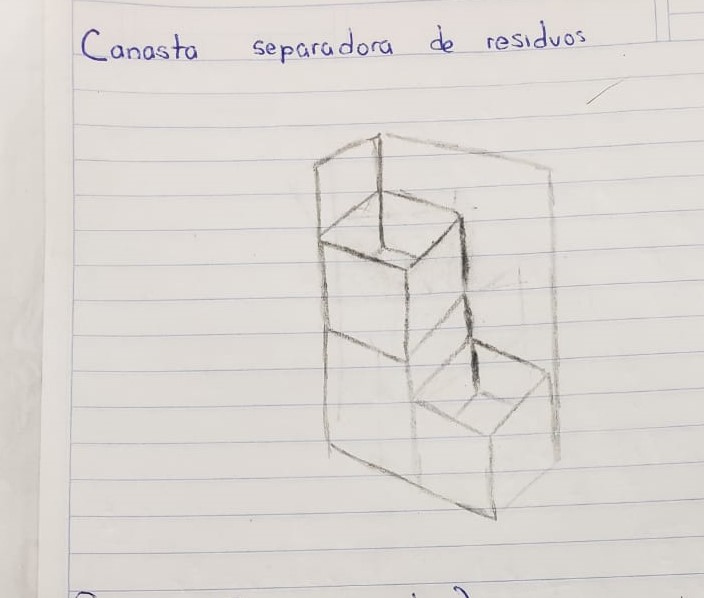 Canasta separadora de residuos